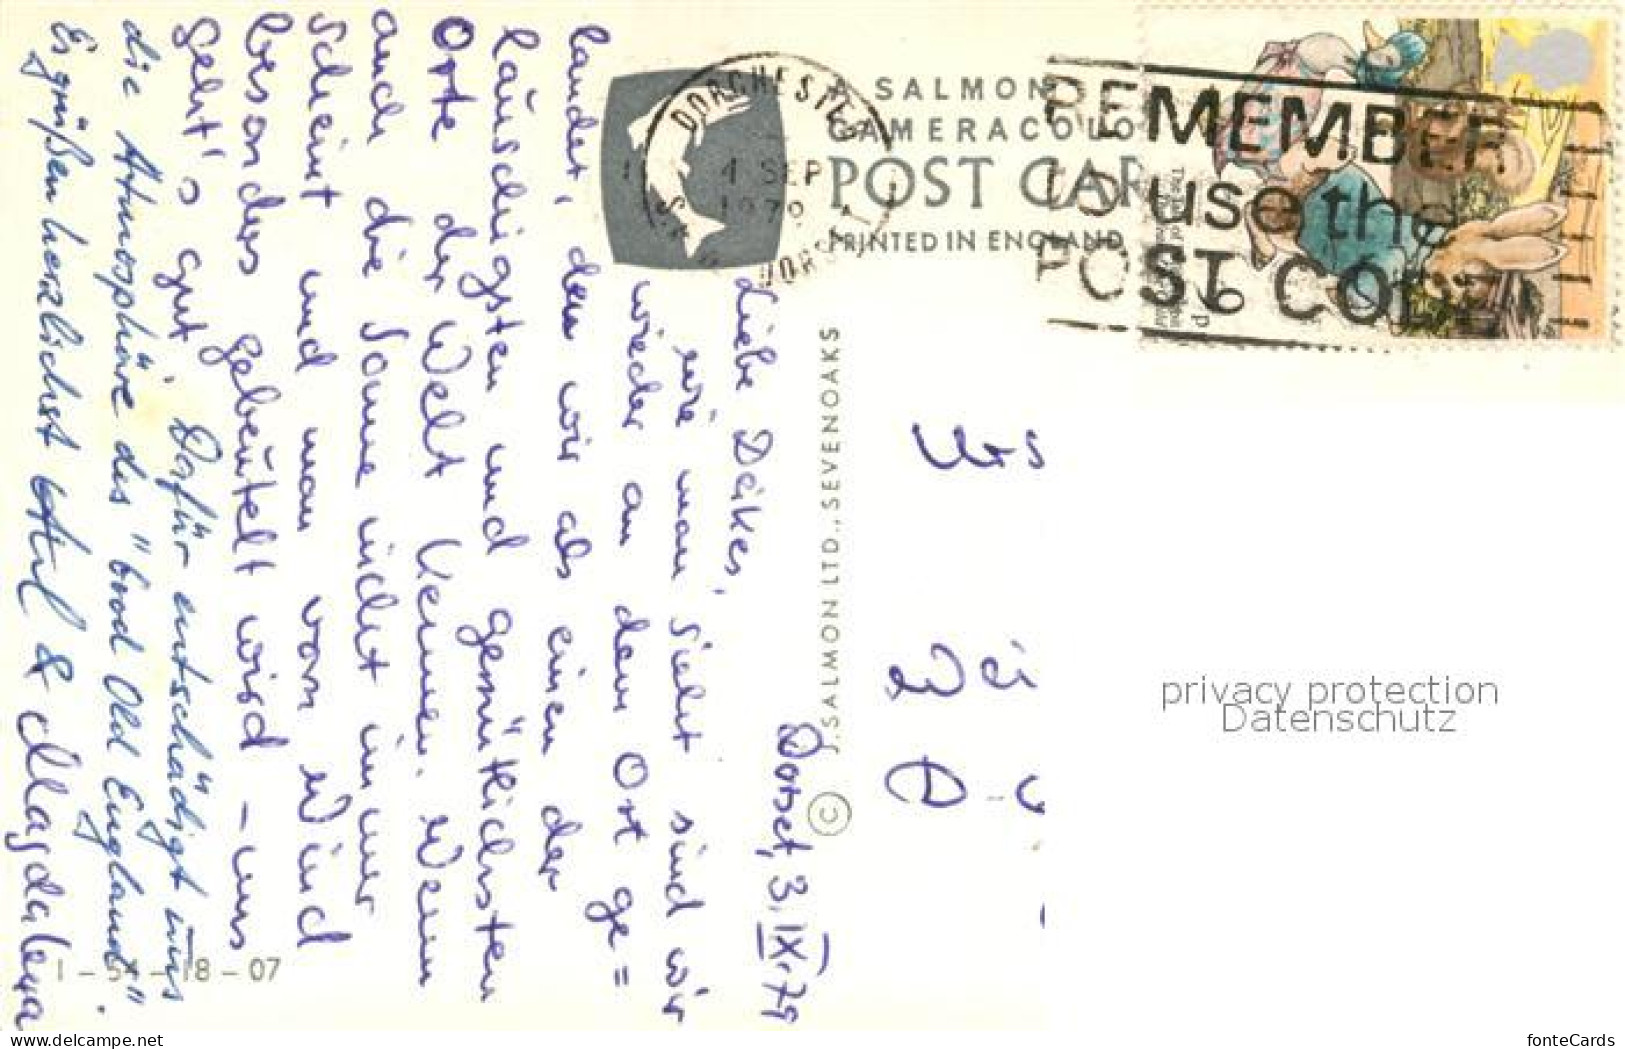 A SALMON
CAMERACOLO
POST CAR
PRINTED IN ENGLAND
DORCHESTER
4 SEP
1979
DORSET
REMEMBER
to use the
POST CODE
Dorset, 3.IX.79
Liebe Deikes,
wie man sieht sind wir
wieder an dem Ort ge=
landet, den wir als einen der
lauschigsten und gemütlichsten
Orte der Welt kennen. Wenn
auch die Sonne nicht immer
scheint und man vom Wind
besonders gebeutelt wird – uns
geht's gut. Dafür entschädigt uns
die Atmosphäre des "Good Old England".
Es grüßen herzlichst & Magdalena
© J. SALMON LTD., SEVENOAKS
1 – 54 – 18 – 07
Urs
Dei
D-
privacy protection
Datenschutz
www.delcampe.net
fonteCards